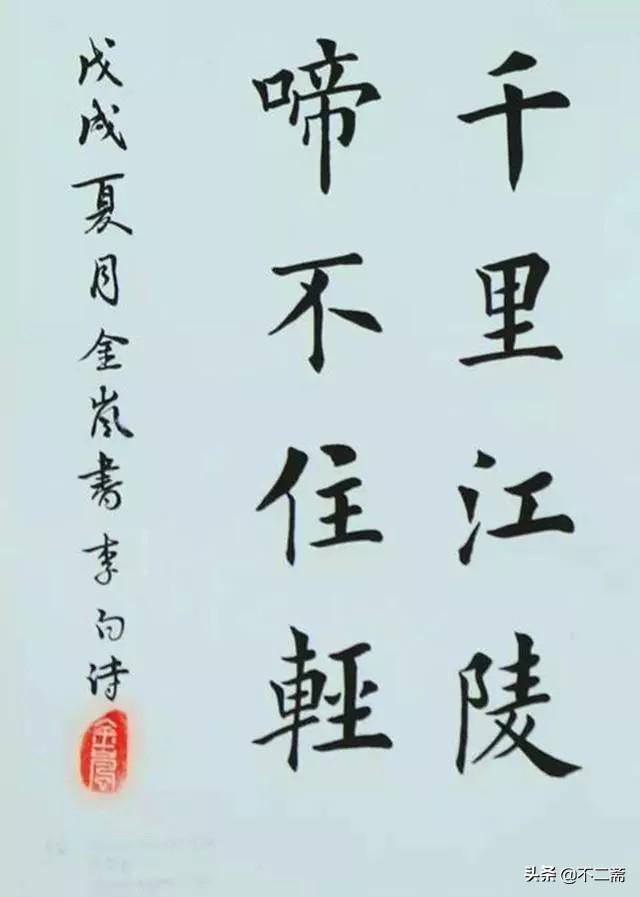 千里江陵
啼不住輕
戊戌夏月金岚書李白诗
头条 @不二斋